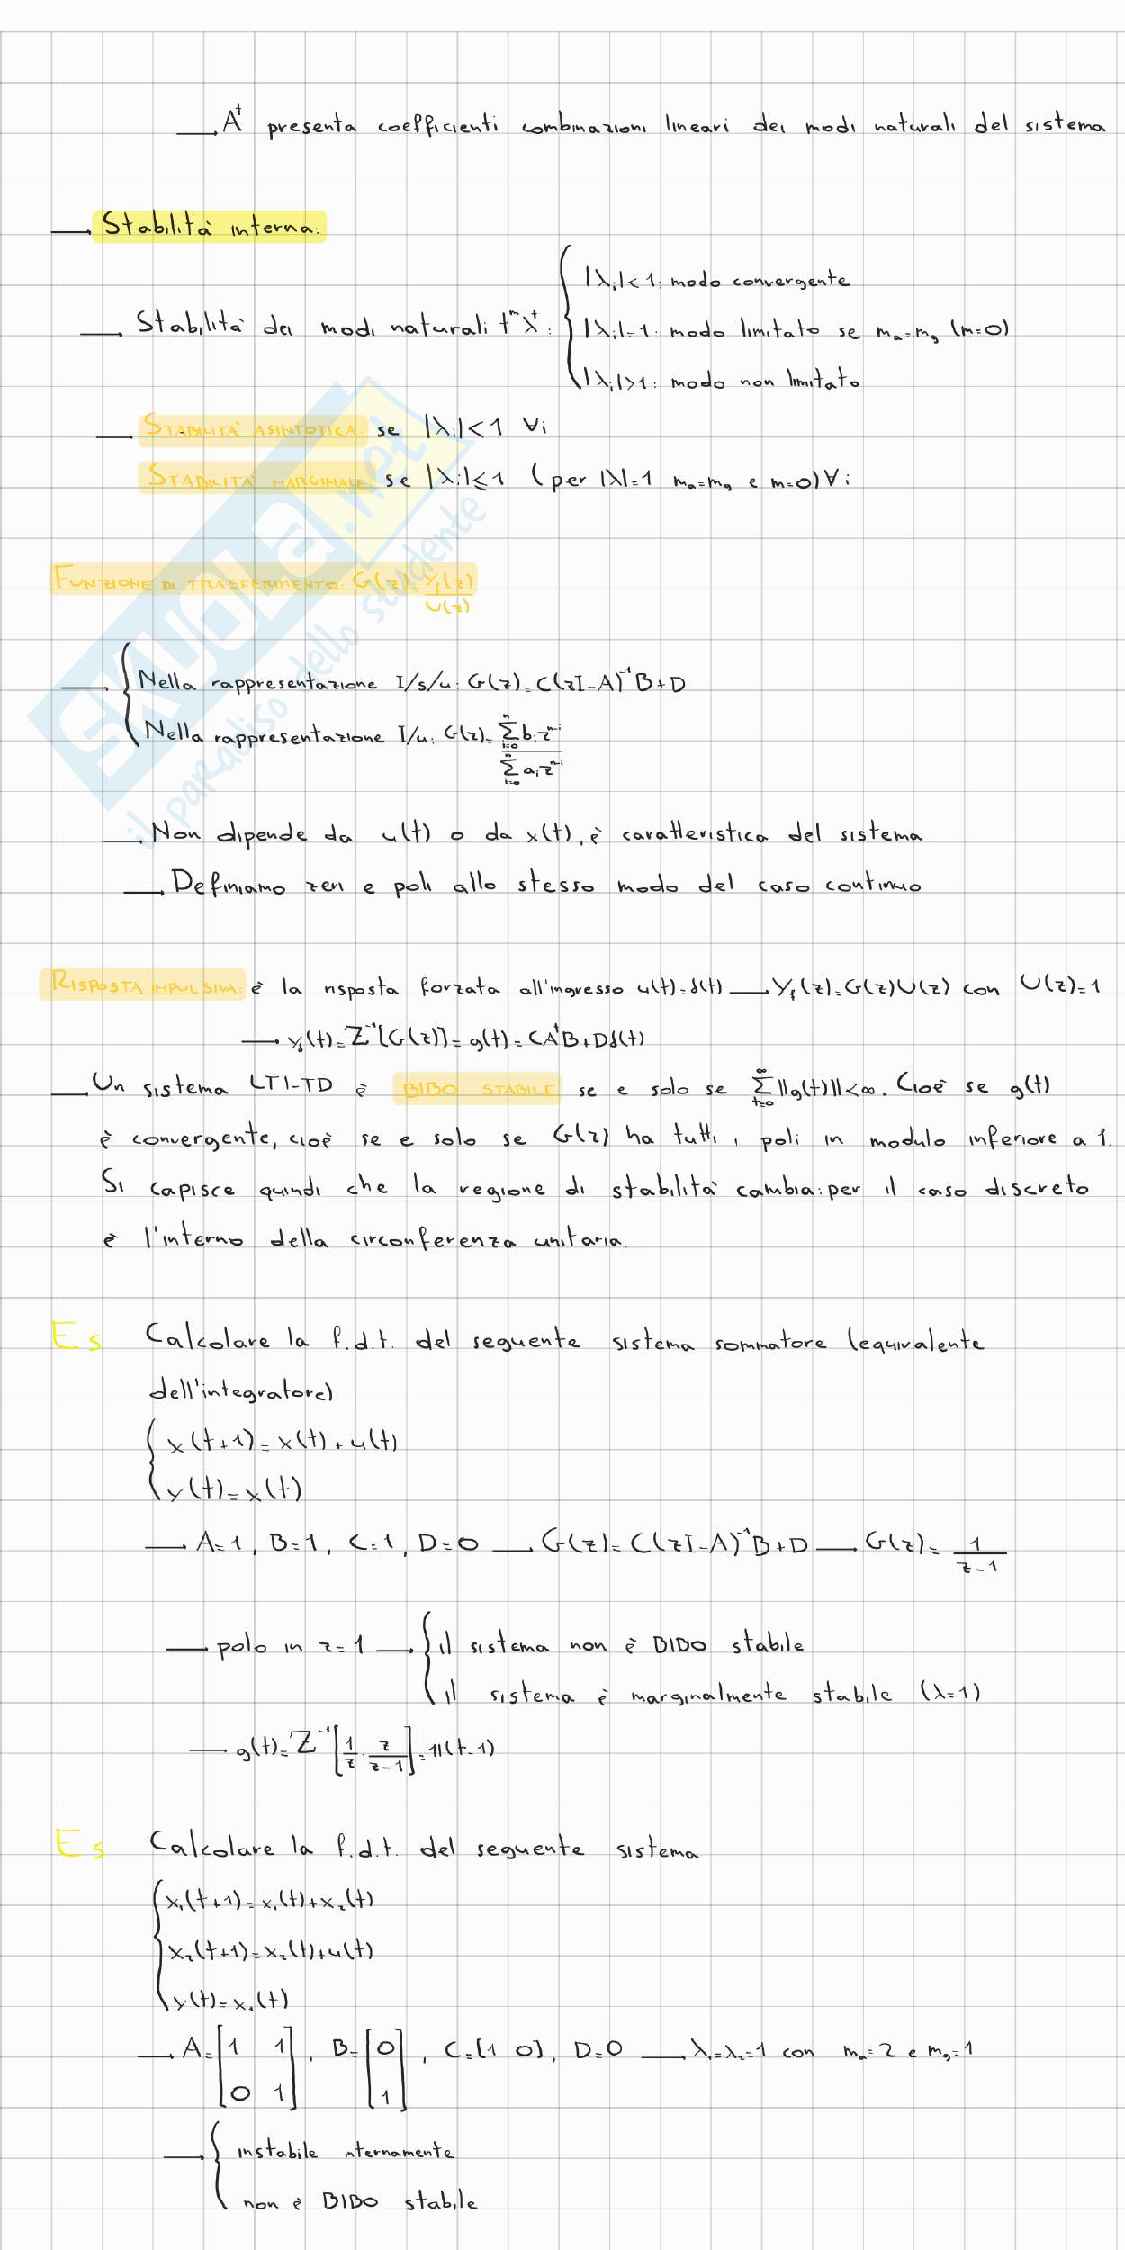 → Aᵗ presenta coefficienti combinazioni lineari dei modi naturali del sistema
→ Stabilità interna:
Stabilità dei modi naturali tᵐλᵗ: { |λᵢ|<1: modo convergente
|λᵢ|=1: modo limitato se mₐ=m_g (m=0)
|λᵢ|>1: modo non limitato
STABILITÀ ASINTOTICA: se |λᵢ|<1 ∀i
STABILITÀ MARGINALE: se |λᵢ|≤1 (per |λ|=1 mₐ=m_g e m=0) ∀i
FUNZIONE DI TRASFERIMENTO: G(z)=Y_f(z)/U(z)
→ { Nella rappresentazione I/s/u: G(z)=C(zI-A)⁻¹B+D
Nella rappresentazione I/u: G(z)= Σⁿᵢ₌₀ bᵢzⁿ⁻ⁱ / Σⁿᵢ₌₀ aᵢzⁿ⁻ⁱ
→ Non dipende da u(t) o da x(t), è caratteristica del sistema
→ Definiamo zeri e poli allo stesso modo del caso continuo
RISPOSTA IMPULSIVA: è la risposta forzata all'ingresso u(t)=δ(t) → Y_f(z)=G(z)U(z) con U(z)=1
→ y_f(t)=Z⁻¹[G(z)]=g(t)=CAᵗB+Dδ(t)
→ Un sistema LTI-TD è BIBO STABILE se e solo se Σ^∞ₜ₌₀ ||g(t)||<∞. Cioè se g(t)
è convergente, cioè se e solo se G(z) ha tutti i poli in modulo inferiore a 1.
Si capisce quindi che la regione di stabilità cambia: per il caso discreto
è l'interno della circonferenza unitaria.
Es Calcolare la f.d.t. del seguente sistema sommatore (equivalente
dell'integratore)
{ x(t+1)=x(t)+u(t)
y(t)=x(t)
→ A=1, B=1, C=1, D=0 → G(z)=C(zI-A)⁻¹B+D → G(z)= 1/(z-1)
→ polo in z=1 → { il sistema non è BIBO stabile
il sistema è marginalmente stabile (λ=1)
→ g(t)=Z⁻¹[1/z · z/(z-1)]=1(t-1)
Es Calcolare la f.d.t. del seguente sistema
{ x₁(t+1)=x₁(t)+x₂(t)
x₂(t+1)=x₂(t)+u(t)
y(t)=x₁(t)
→ A=[1 1; 0 1], B=[0; 1], C=[1 0], D=0 → λ₁=λ₂=1 con mₐ=2 e m_g=1
→ { instabile internamente
non è BIBO stabile
SKUOLA.net
il paradiso dello studente